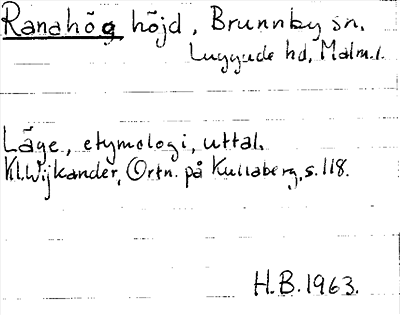 Ranahög höjd, Brunnby sn.
Luggude hd, Malm.l.
Läge, etymologi, uttal.
Kl.Wijkander, Ortn. på Kullaberg, s. 118.
H.B. 1963.